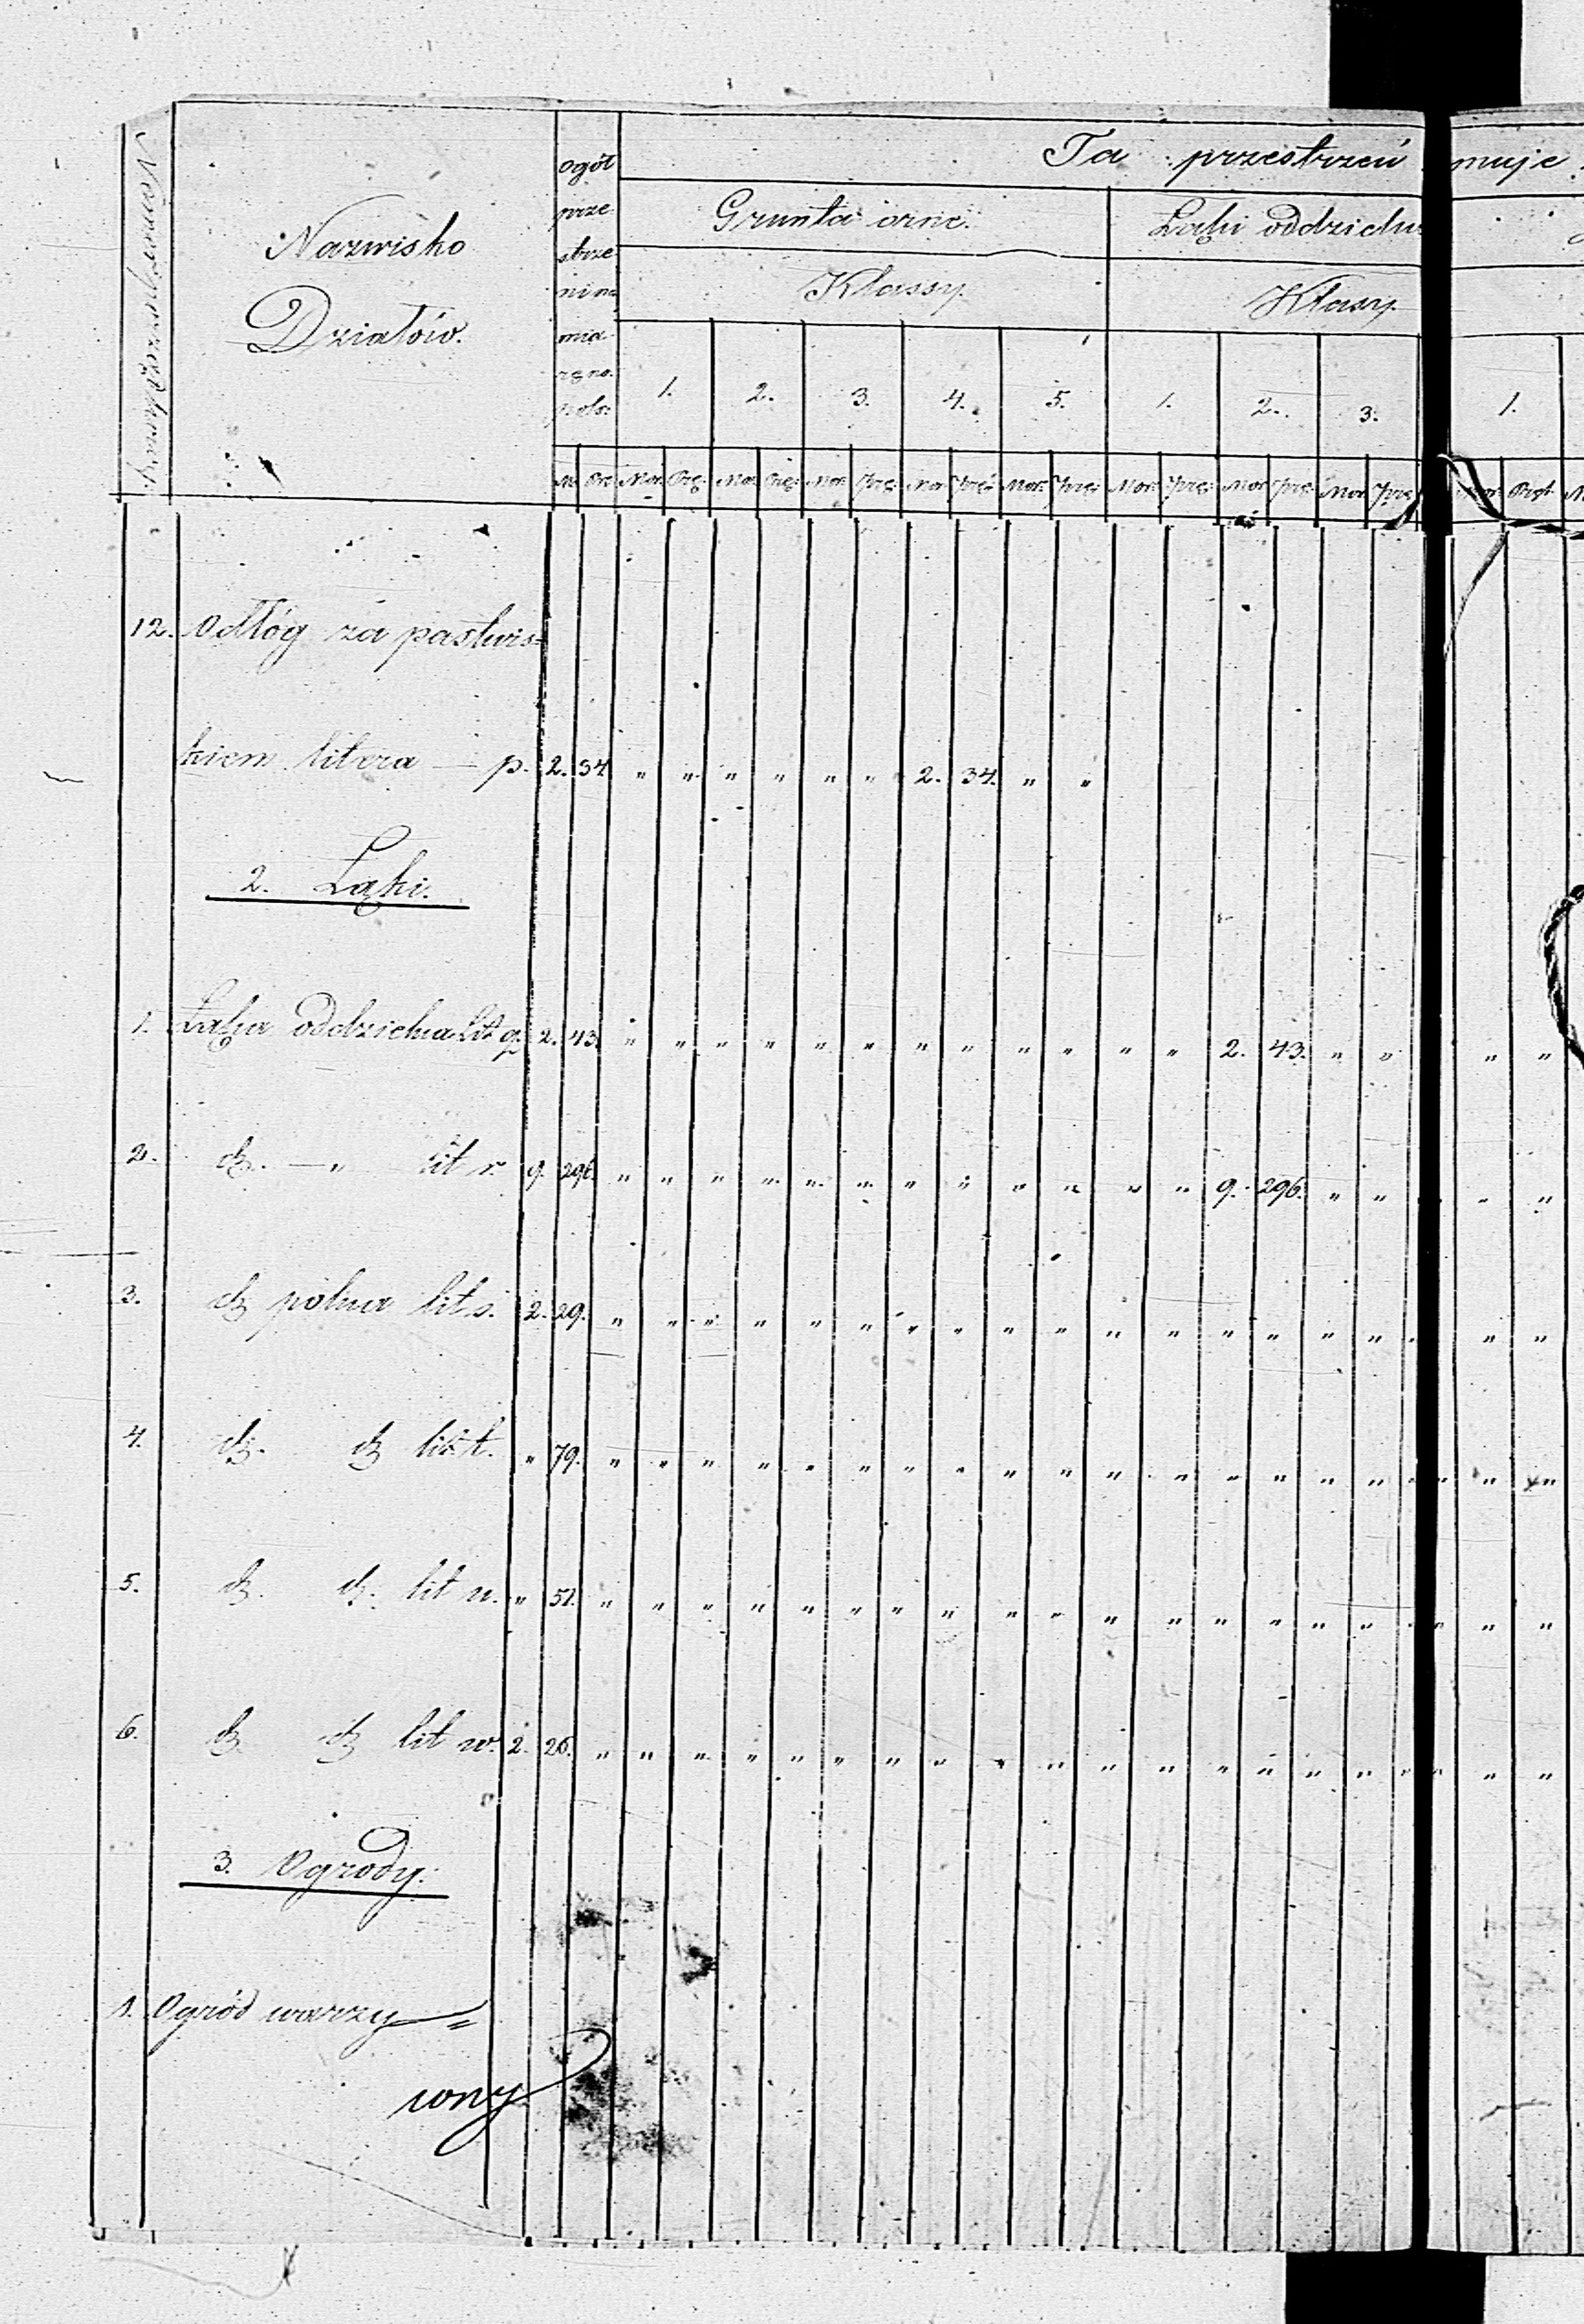 Numer porządkowy
Nazwisko
Działów.
ogół
prze
strze
ni na
mia
rę no.
polo:
Ta przestrzeń muje
Grunta orne. Łąki oddzielne
Klassy. Klasy.
1. 2. 3. 4. 5. 1. 2. 3. 1.
M. Prę. Mor. Prę. Mor. Pręt. Mor. Pręt. Mor. Pręt. Mor. Pręt. Mor. Pręt. Mor. Pręt. Mor. Pręt. Mor. Pręt.
12. Odłóg za pastwis=
kiem litera — p. 2. 34 " " " " " " 2. 34. " "
2. Łąki.
1. Łąka oddzielna lit q. 2. 43. " " " " " " " " " " " " 2. 43. " " " "
2. dz. — " — lit r. 9. 296. " " " " " " " " " " " " 9. 296. " " " "
3. dz polna lit s. 2. 29. " " " " " " " " " " " " " " " " " "
4. dz. dz lit t. " 79. " " " " " " " " " " " " " " " " " "
5. dz. dz. lit u. " 51. " " " " " " " " " " " " " " " " " "
6. dz. dz lit w. 2. 26. " " " " " " " " " " " " " " " " " "
3. Ogrody.
1. Ogród warzy=
wny